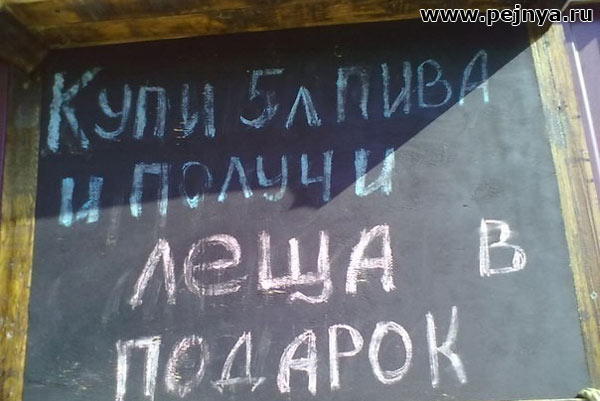 www.pejnya.ru
Купи 5л пива
и получи
леща в
подарок